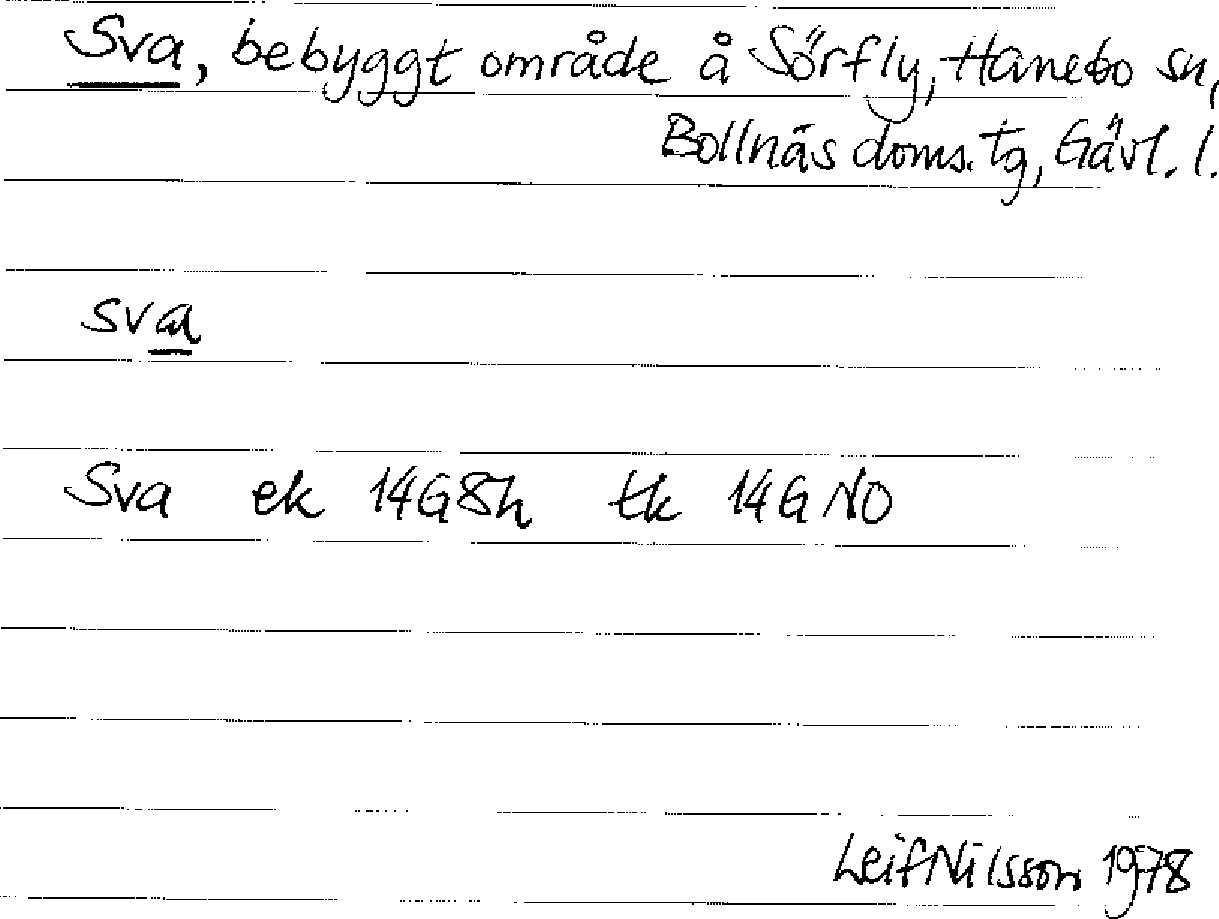 Sva, bebyggt område å Sörfly, Hanebo sn,
Bollnäs doms. tg, Gävl. l.
sva
Sva ek 14G8h tk 14G NO
Leif Nilsson 1978